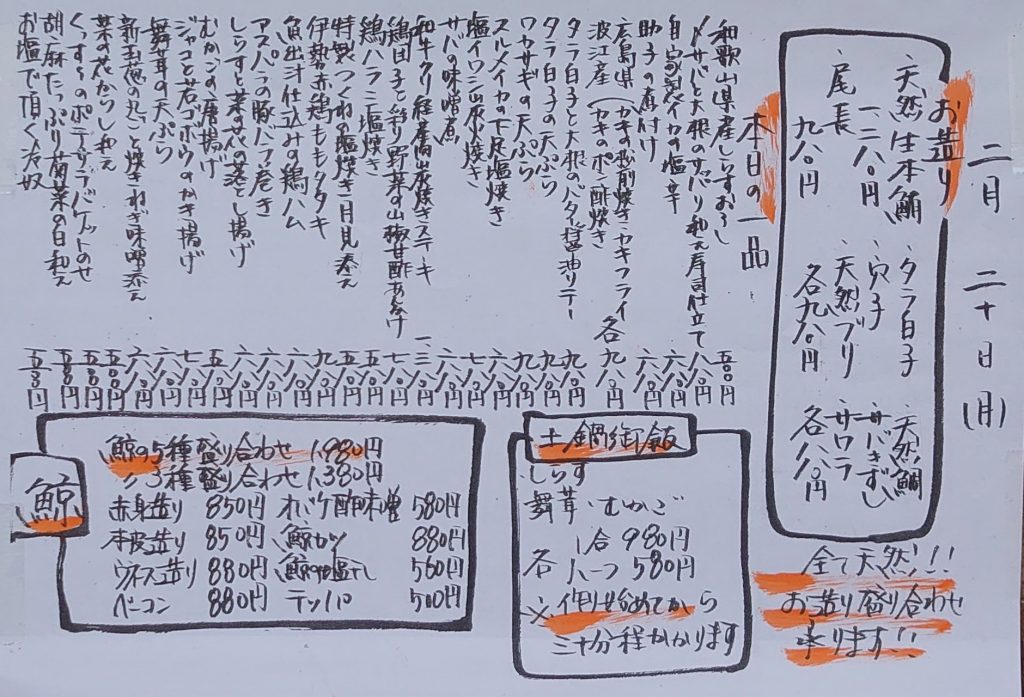 二月二十日(月)
お造り
・天然生本鮪 一二八〇円
・尾長 九八〇円
・タラ白子
・穴子
・天然ブリ
各九八〇円
・天然鯛
・サバきずし
・サワラ
各八八〇円
全て天然!!
お造り盛り合わせ
承ります!!
本日の一品
和歌山県産しらすおろし 五八〇円
〆サバと大根のサッパリ和え寿司仕立て 八八〇円
自家製イカの塩辛 六八〇円
助子の煮付け 六八〇円
広島県 波江産(カキの松前焼き・カキフライ カキのポン酢焼き 各九八〇円
タラ白子と大根のバター醤油ソテー 九八〇円
タラ白子の天ぷら 九八〇円
ワカサギの天ぷら 九八〇円
スルメイカの下足塩焼き 六八〇円
塩イワシ炭火焼き 七八〇円
サバの味噌煮 六八〇円
和牛クリ 経産 炭焼きステーキ 一、三八〇円
鶏団子と彩り野菜の山椒甘酢あんかけ 七八〇円
鶏ハラミ塩焼き 五八〇円
特製つくねの塩焼き 月見添え 五八〇円
伊勢赤鶏ももタタキ 九八〇円
魚出汁仕込みの鶏ハム 六八〇円
アスパラの豚バラ巻き 六八〇円
しらすと菜の花の落とし揚げ 六八〇円
むかごの唐揚げ
ジャコと若ゴボウのかき揚げ 七八〇円
舞茸の天ぷら 六八〇円
新玉葱の丸ごと焼き ねぎ味噌添え 六八〇円
菜の花からし和え 五〇〇円
くんすのポテサラ バケットのせ 五八〇円
胡麻たっぷり菊菜の白和え 五八〇円
お塩で頂く冷奴 五五〇円
土鍋御飯
しらす
舞茸・むかご
各 一合 980円
ハーフ 580円
※作り始めてから
三十分程かかります
鯨
鯨の5種盛り合わせ 1,980円
〃 3種盛り合わせ 1,380円
赤身造り 850円 オバケ酢味噌 580円
本皮造り 850円 鯨カツ 880円
ウネス造り 880円 鯨の塩干し 560円
ベーコン 880円 テッパ 500円